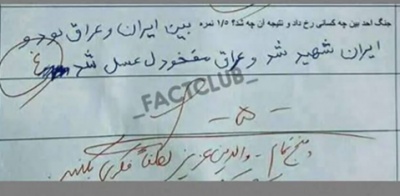 جنگ احد بین چه کسانی رخ داد و نتیجه آن چه شد؟ ۱/۵ نمره بین ایران و عراق بود و
ایران شهید شد و عراق مفخود ل عسل شد
_FACTCLUB_
- ۵ -
پنج تمام - والدین عزیز لطفاً فکری بکنید